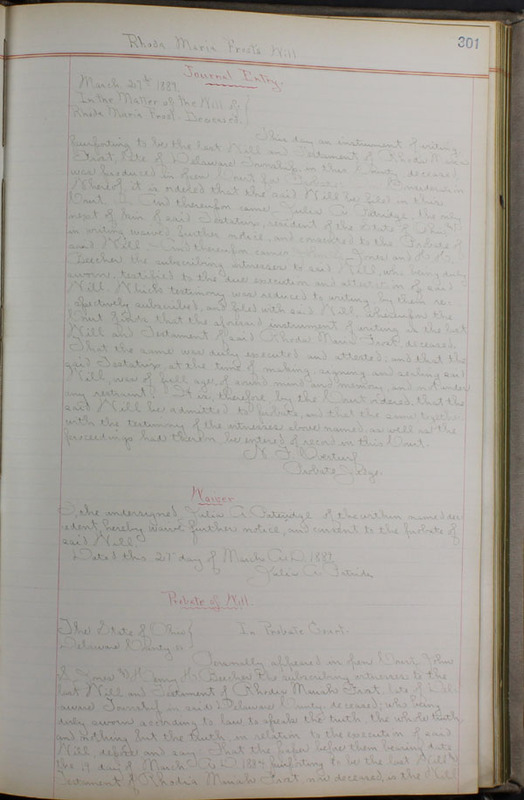 301
Rhoda Maria Frost's Will
Journal Entry.
March 27th 1889.
In the Matter of the Will of
Rhoda Maria Frost. Deceased.
This day an instrument of writing
purporting to be the last Will and Testament of Rhoda M
Frost, late of Delaware Township, in this County deceased
was produced in Open Court for
Whereof it is ordered that the said Will be filed in this
Court. And thereupon came Julia A. Patridge, the only
next of kin of said Testatrix, resident of the State of Ohio &
in writing waived further notice, and consented to the Probate of
said Will. And thereupon came Jones and H. H.
Beecher the subscribing witnesses to said Will, who being duly
sworn, testified to the due execution and attestation of said
Will. Which testimony was reduced to writing, by them re-
spectively subscribed, and filed with said Will. Whereupon the
Court finds that the aforesaid instrument of writing is the last
Will and Testament of said Rhoda Maria Frost, deceased.
That the same was duly executed and attested; and that the
said Testatrix at the time of making, signing and sealing said
Will, was of full age, of sound mind and memory, and not under
any restraint. It is, therefore, by the Court ordered that the
said Will be admitted to probate, and that the same together
with the testimony of the witnesses above named, as well as the
proceedings had therein be entered of record in this Court.
N. F. Overturf
Probate Judge.
Waiver
I, the undersigned, Julia A. Patridge of the within named dec
edent, hereby waive further notice, and consent to the probate of
said Will.
Dated this 27 day of March A.D. 1889.
Julia A. Patridge
Probate of Will.
The State of Ohio
Delaware County ss
In Probate Court.
Personally appeared in Open Court, John
S. Jones & Henry H. Beecher the subscribing witnesses to the
last Will and Testament of Rhoda Maria Frost, late of Del-
aware Township in said Delaware County, deceased; who being
duly sworn according to law to speak the truth the whole truth
and nothing but the truth, in relation to the execution of said
Will, depose and say: That the paper before them bearing date
the day of March A.D. purporting to be the last Will &
Testament of Rhoda Maria Frost now deceased, is the Will